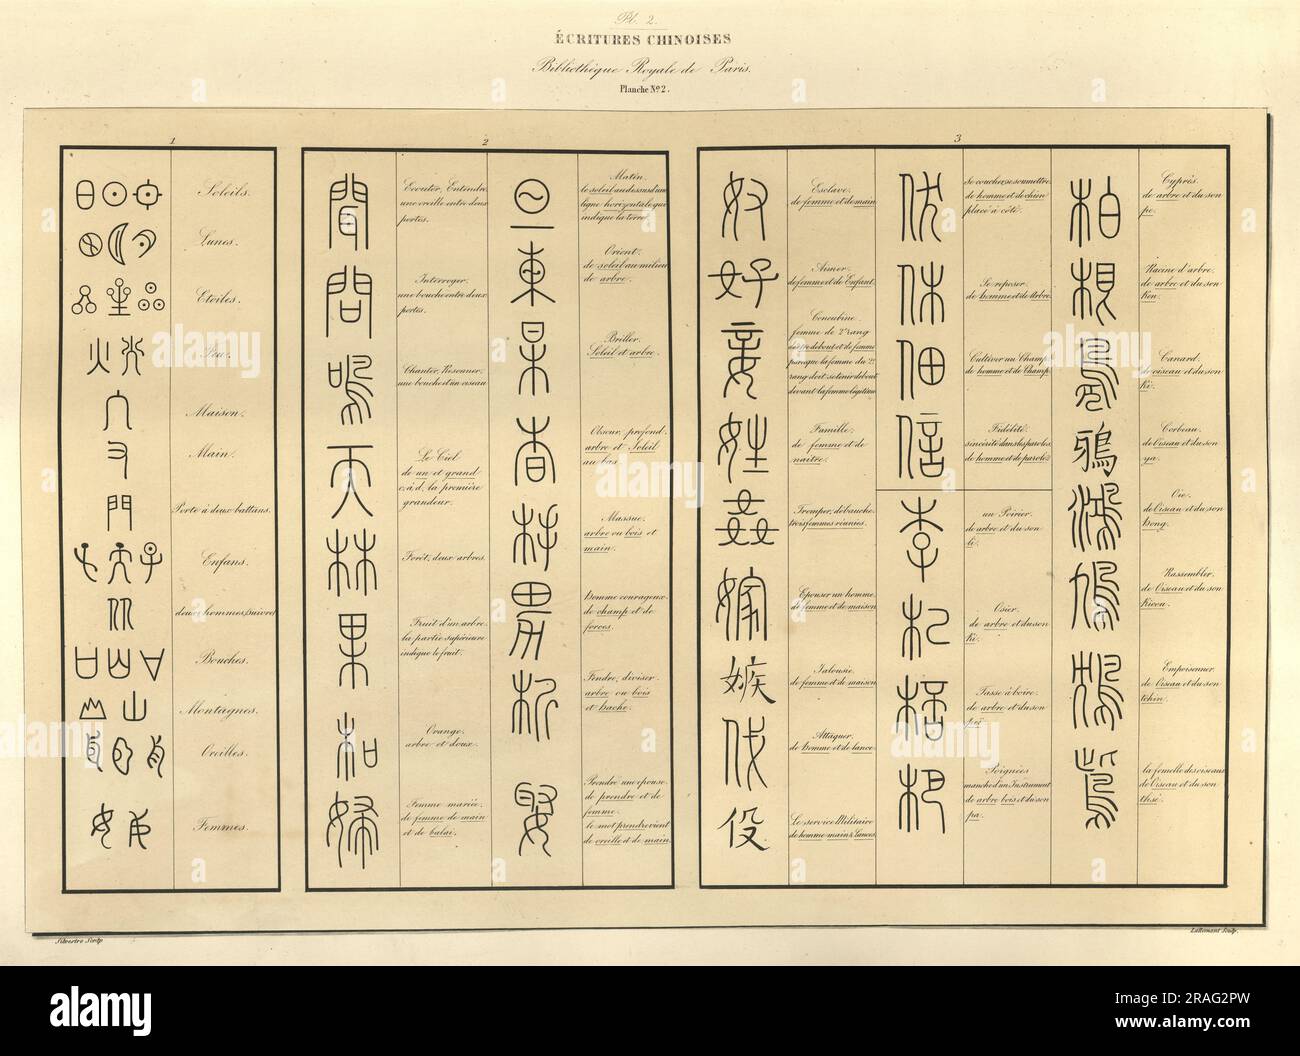 Pl. 2.
ÉCRITURES CHINOISES
Bibliothèque Royale de Paris.
Planche Nº 2.
1
Soleils.
Lunes.
Etoiles.
Feu.
Maison.
Main.
門
Porte à deux battans.
Enfans.
deux hommes, suivre
Bouches.
Montagnes.
Oreilles.
Femmes.
2
聞
Ecouter, Entendre,
une oreille entre deux
portes.
問
Interroger,
une bouche entre deux
portes.
鳴
Chanter, Resonner,
une bouche et un oiseau
天
Le Ciel
de un et grand
c.à.d. la première
grandeur.
林
Forêt, deux arbres.
果
Fruit d'un arbre,
la partie supérieure
indique le fruit.
Orange,
arbre et doux.
婦
Femme mariée,
de femme de main
et de balai.
旦
Matin.
le soleil au dessus d'une
ligne horizontale qui
indique la terre.
東
Orient.
de soleil au milieu
de arbre.
杲
Briller.
Soleil et arbre.
杳
Obscur, profond,
arbre et Soleil
au bas
Massue,
arbre ou bois et
main.
男
homme courageux,
de champ et de
forces.
析
Fendre, diviser,
arbre ou bois
et hache.
娶
Prendre une épouse,
de prendre et de
femme.
le mot prendre vient
de oreille et de main.
3
奴
Esclave.
de femme et de main
好
Aimer.
de femme et de Enfant.
妾
Concubine.
femme de 2e rang
être debout et de femme
parceque la femme du 2e
rang doit se tenir debout
devant la femme légitime
姓
Famille.
de femme et de
naitre.
姦
Tromper, débauche,
trois femmes réunies.
嫁
Epouser un homme,
de femme et de maison
嫉
Jalousie.
de femme et de maison
伐
Attaquer.
de homme et de lance
役
Le service Militaire
de homme main & Lances.
伏
Se coucher, se soumettre,
de homme et de chien
placé à côté.
休
Se reposer.
de homme et de Arbre.
佃
Cultiver un Champ.
de homme et de Champ.
信
Fidélité.
sincérité dans les paroles,
de homme et de paroles
李
un Poirier.
de arbre et du son
li.
杞
Osier.
de arbre et du son
Ki.
Tasse à boire,
de arbre et du son
Poignées
manche d'un Instrument
de arbre bois et du son
pa.
柏
Cyprès.
de arbre et du son
pe.
根
Racine d'arbre.
de arbre et du son
Ken.
Canard.
de oiseau et du son
Ki.
鴉
Corbeau.
de Oiseau et du son
ya.
鴻
Oie.
de Oiseau et du son
hong.
鳩
Rassembler.
de Oiseau et du son
Kieou.
鴆
Empoisonner.
de Oiseau et du son
tchin.
la femelle des oiseaux
de Oiseau et du son
thse.
Silvestre Scrip
Lallemant Sculp.
alamy
Image ID: RAG2PW
www.alamy.com